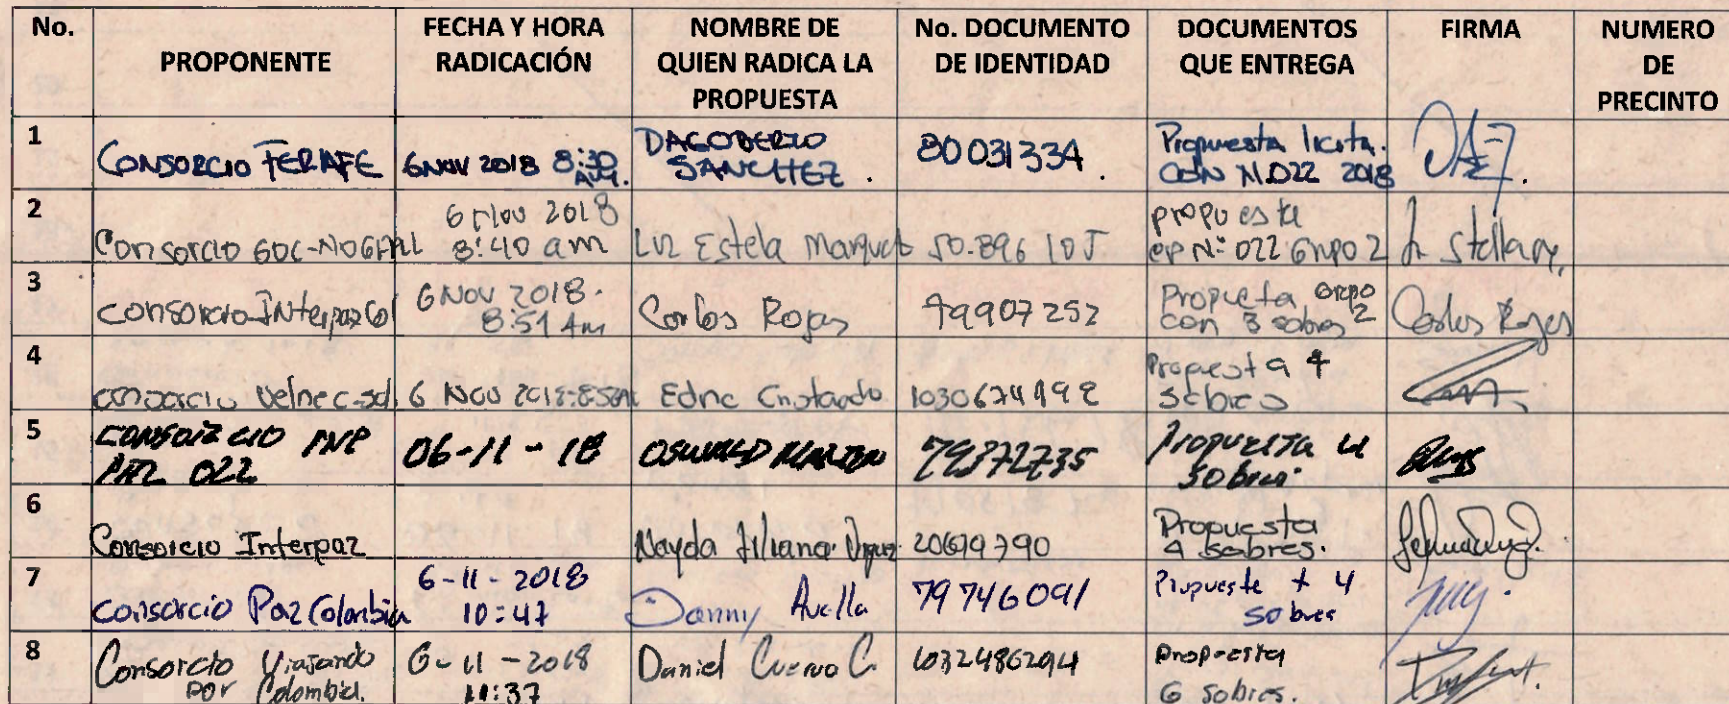 No.
PROPONENTE
FECHA Y HORA
RADICACIÓN
NOMBRE DE
QUIEN RADICA LA
PROPUESTA
No. DOCUMENTO
DE IDENTIDAD
DOCUMENTOS
QUE ENTREGA
FIRMA
NUMERO
DE
PRECINTO
1
CONSORCIO FERAFE
6 NOV 2018 8:30
A.M.
DAGOBERTO
SANCHEZ.
80031334.
Propuesta licita.
CON N.022 2018
2
Consorcio GOC-NOGAL
6 Nov 2018
8:40 am
Luz Estela Marquez
50.896 105
propuesta
cp Nº 022 Grupo 2
3
consorcio INterpazCol
6 Nov 2018.
8:51 Am
Carlos Rojas
79907252
Propueta Grupo 2
con 3 sobres
Carlos Rojas
4
consorcio Velnec-sdl
6 Nov 2018
Edna
Propuesta 4
sobres
5
CONSORCIO
022
06-11-18
79372735
Propuesta 4
sobres.
6
Consorcio Interpaz
Nayda Liliana
20699790
Propuesta
4 sobres.
7
consorcio Paz Colombia
6-11-2018
10:47
Danny Avella
79746091
Propueste + 4
sobres
8
Consorcio Viajando
por Colombia.
6-11-2018
11:37
Daniel Cuervo C.
Propuesta
6 sobres.